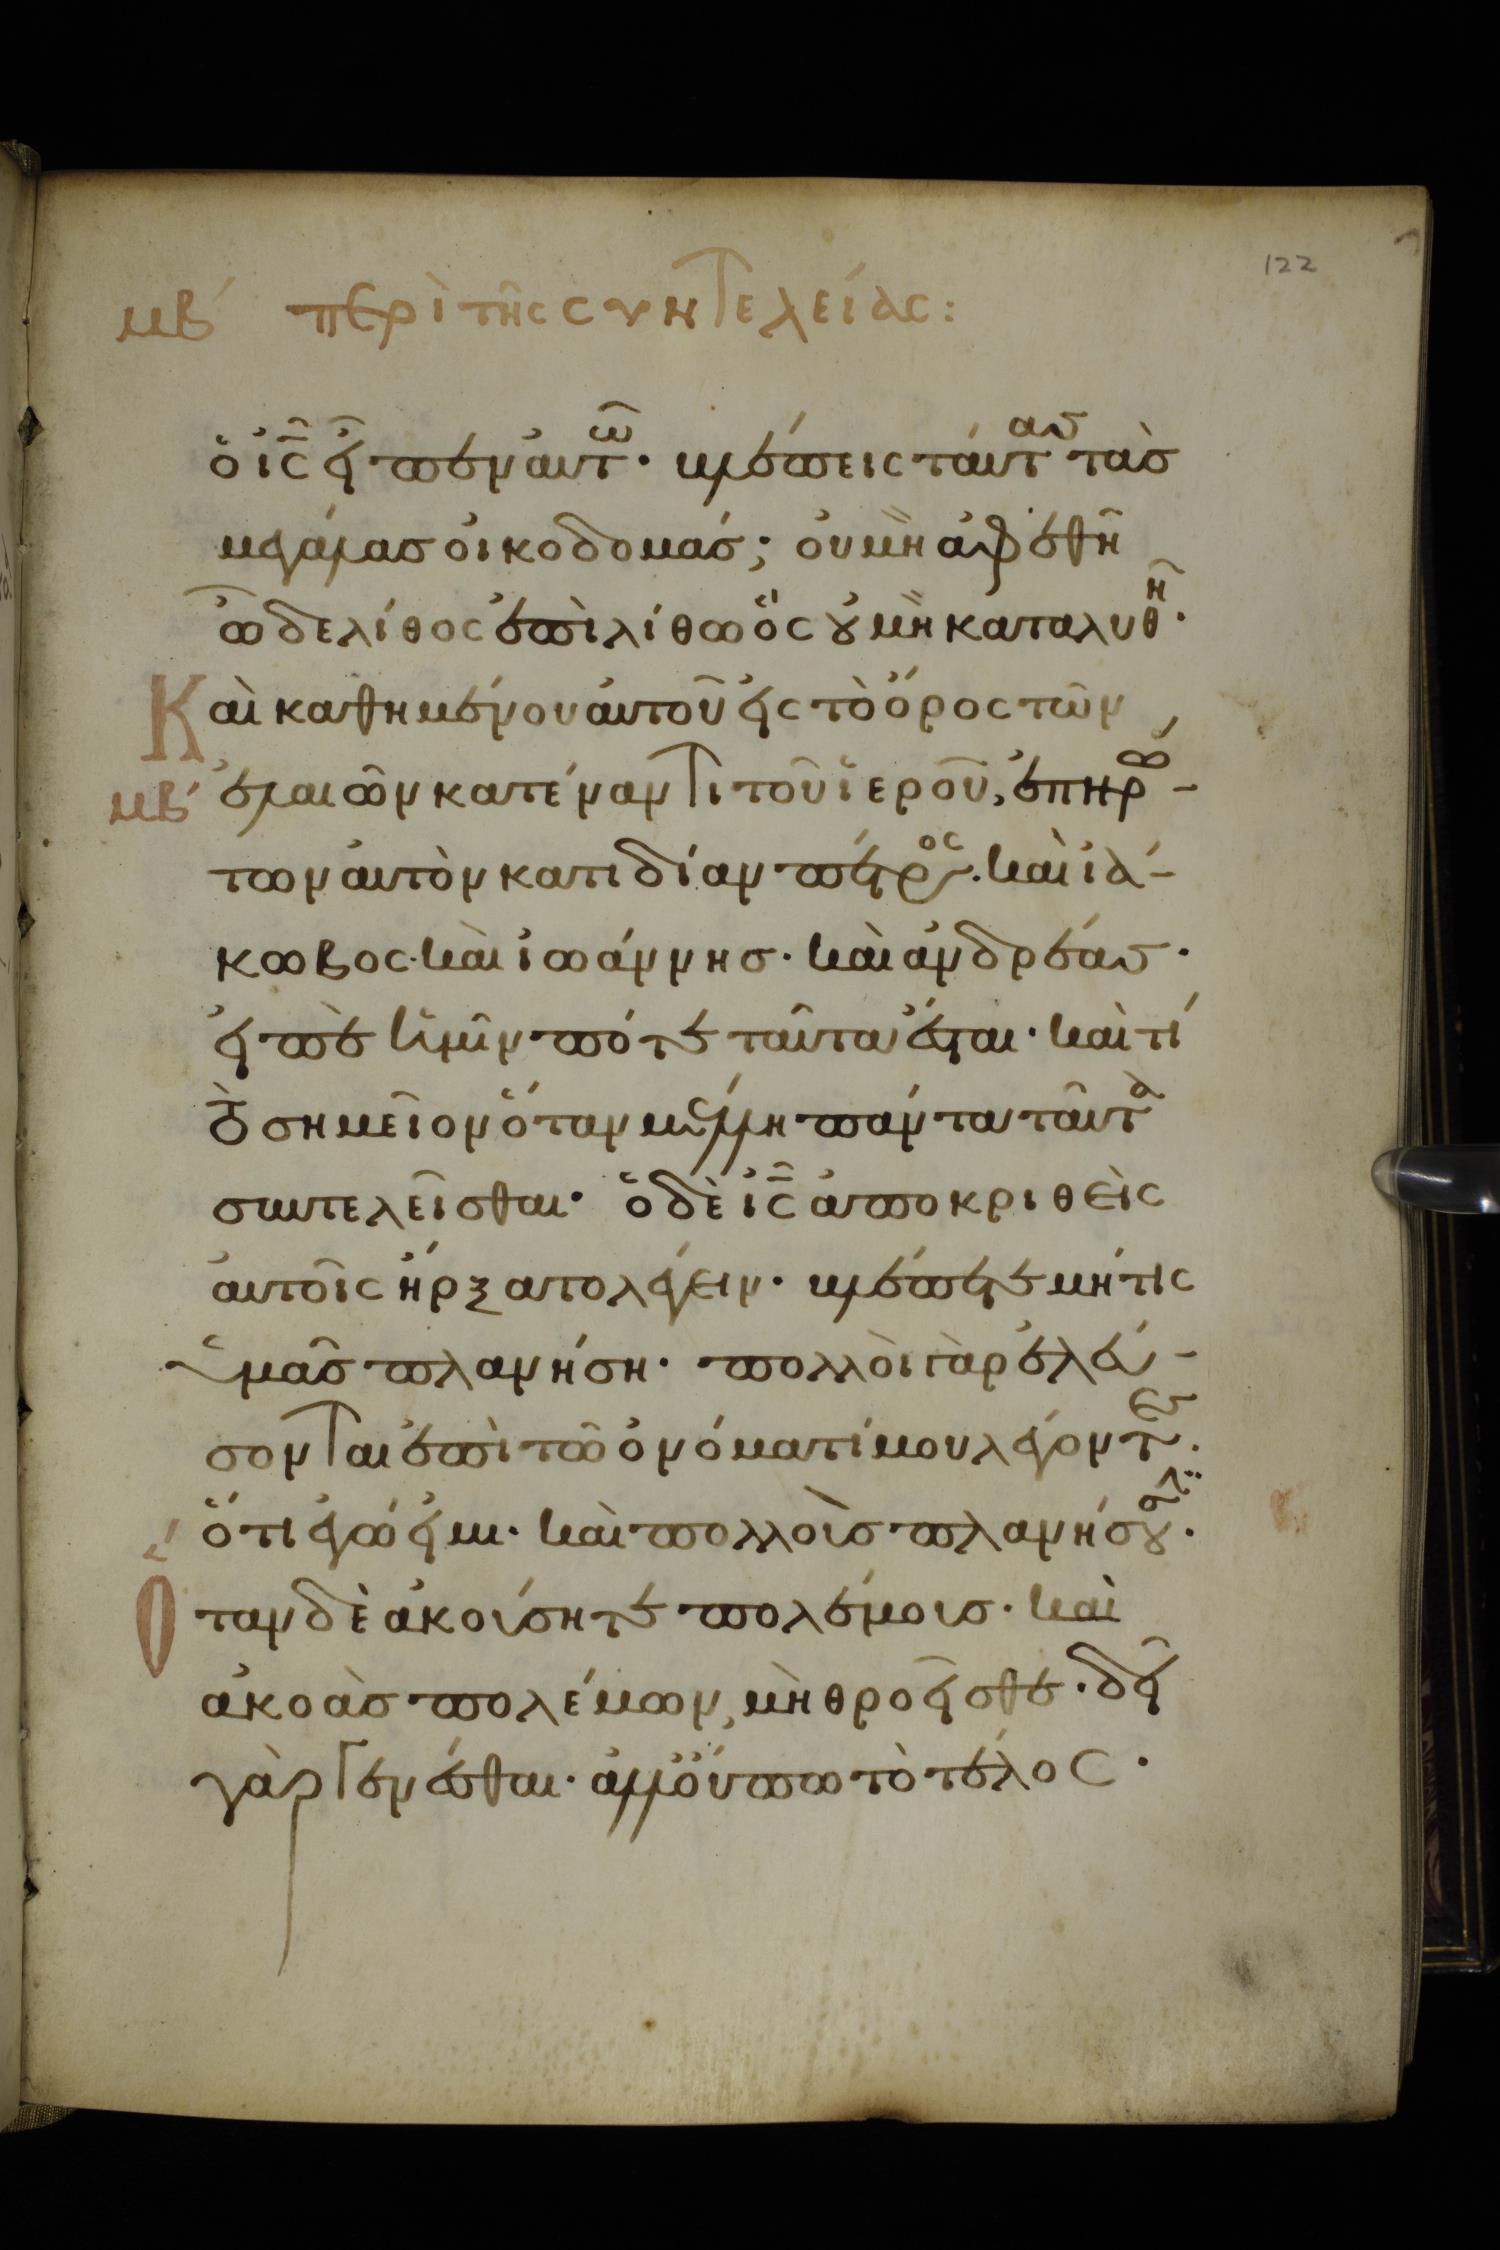 122
μβ΄ περὶ τῆς συντελείας:
ὁ ἰ̅ς̅ εἶπεν αὐτῶ· βλέπεις ταύτας τὰσ
μεγάλασ οἰκοδομάσ; οὐ μὴ ἀφεθῆ
ὧδε λίθος ἐπὶ λίθω ὃς οὐ μὴ καταλυθῆ·
Καὶ καθημένου αὐτοῦ εἰς τὸ ὄρος τῶν
μβ΄ ἐλαιῶν κατέναντι τοῦ ἱεροῦ, ἐπηρώ-
των αὐτὸν κατιδίαν πέτρος· καὶ ἰά-
κωβος· καὶ ἰωάννησ· καὶ ἀνδρέασ·
εἰπὲ ἡμῖν πότε ταῦτα ἔσται· καὶ τί
τὸ σημεῖον ὅταν μέλλη πάντα ταῦτα
συντελεῖσθαι· ὁ δὲ ἰ̅ς̅ ἀποκριθεὶς
αὐτοῖς ἤρξατο λέγειν· βλέπετε μή τις
ὑμᾶσ πλανήση· πολλοὶ γὰρ ἐλεύ-
σονται ἐπὶ τῶ ὀνόματί μου λέγοντες·
ὅτι ἐγώ εἰμι· καὶ πολλοὺσ πλανήσουσιν·
Ὅταν δὲ ἀκούσητε πολέμουσ· καὶ
ἀκοὰσ πολέμων, μὴ θροεῖσθε· δεῖ
γὰρ γενέσθαι· ἀλλ' οὔπω τὸ τέλος·